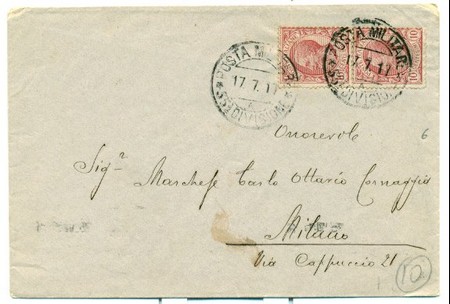 POSTA MILITARE
17.7.17
A
55ª DIVISIONE
POSTA MILITARE
17.7.17
55ª DIVISIONE
10
Onorevole
Sigr
Marchese Carlo Ottavio Cornaggia
Milano
Via Cappuccio 21
6
10